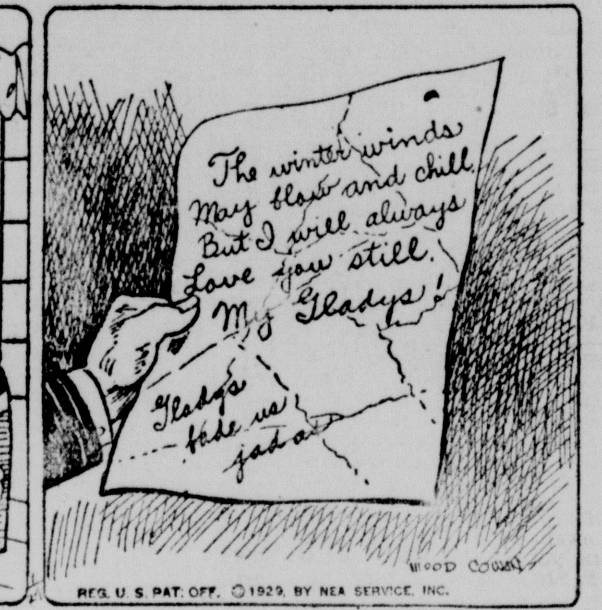 The winter winds
May blow and chill
But I will always
Love you still.
My Gladys!
Gladys
bade us
WOOD COWAN
REG. U. S. PAT. OFF. © 1929, BY NEA SERVICE, INC.